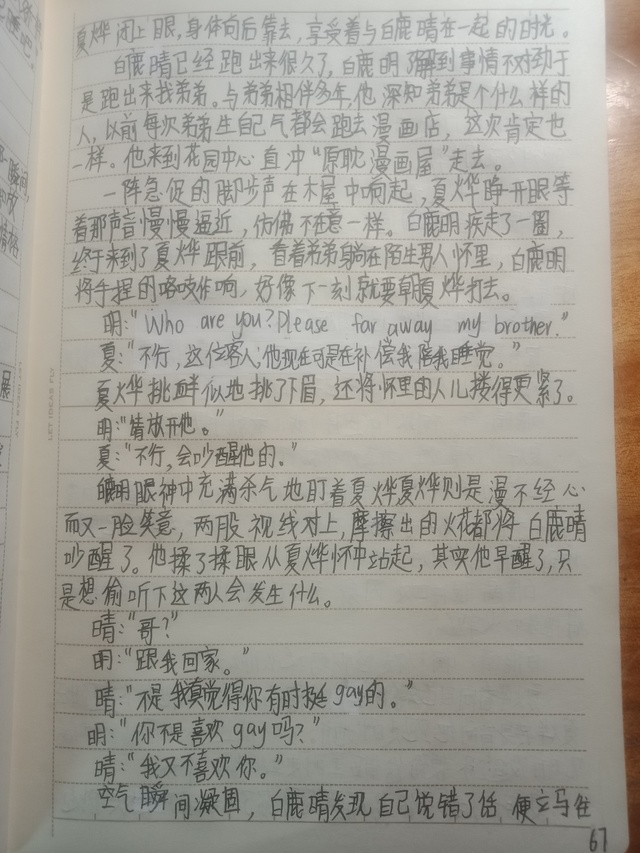 夏烨闭上眼,身体向后靠去,享受着与白鹿晴在一起的时光。
白鹿晴已经跑出来很久了,白鹿明了解到事情不对劲于
是跑出来找弟弟。与弟弟相伴多年,他深知弟弟是个什么样的
人,以前每次弟弟生自己气都会跑去漫画店,这次肯定也
一样。他来到花园中心直冲“原耽漫画屋”走去。
一阵急促的脚步声在木屋中响起,夏烨睁开眼等
着那声音慢慢逼近,仿佛不在意一样。白鹿明疾走了一圈,
终于来到了夏烨跟前,看着弟弟身躺在陌生男人怀里,白鹿明
将手捏的咯吱作响,好像下一刻就要朝夏烨打去。
明:“Who are you?Please far away my brother.”
夏:“不行,这位客人,他现在可是在补偿我陪我睡觉。”
夏烨挑衅似地挑了下眉,还将怀里的人儿搂得更紧了。
明:“请放开他。”
夏:“不行,会吵醒他的。”
白鹿明眼神中充满杀气地盯着夏烨夏烨则是漫不经心
而又一脸笑意,两股视线对上,摩擦出的火花都将白鹿晴
吵醒了。他揉了揉眼从夏烨怀中站起,其实他早醒了,只
是想偷听下这两人会发生什么。
晴:“哥?”
明:“跟我回家。”
晴:“不是我真觉得你有时挺gay的。”
明:“你不是喜欢gay吗?”
晴:“我又不喜欢你。”
空气瞬间凝固,白鹿晴发现自己说错了话,便立马住
67
LET IDEAS FLY